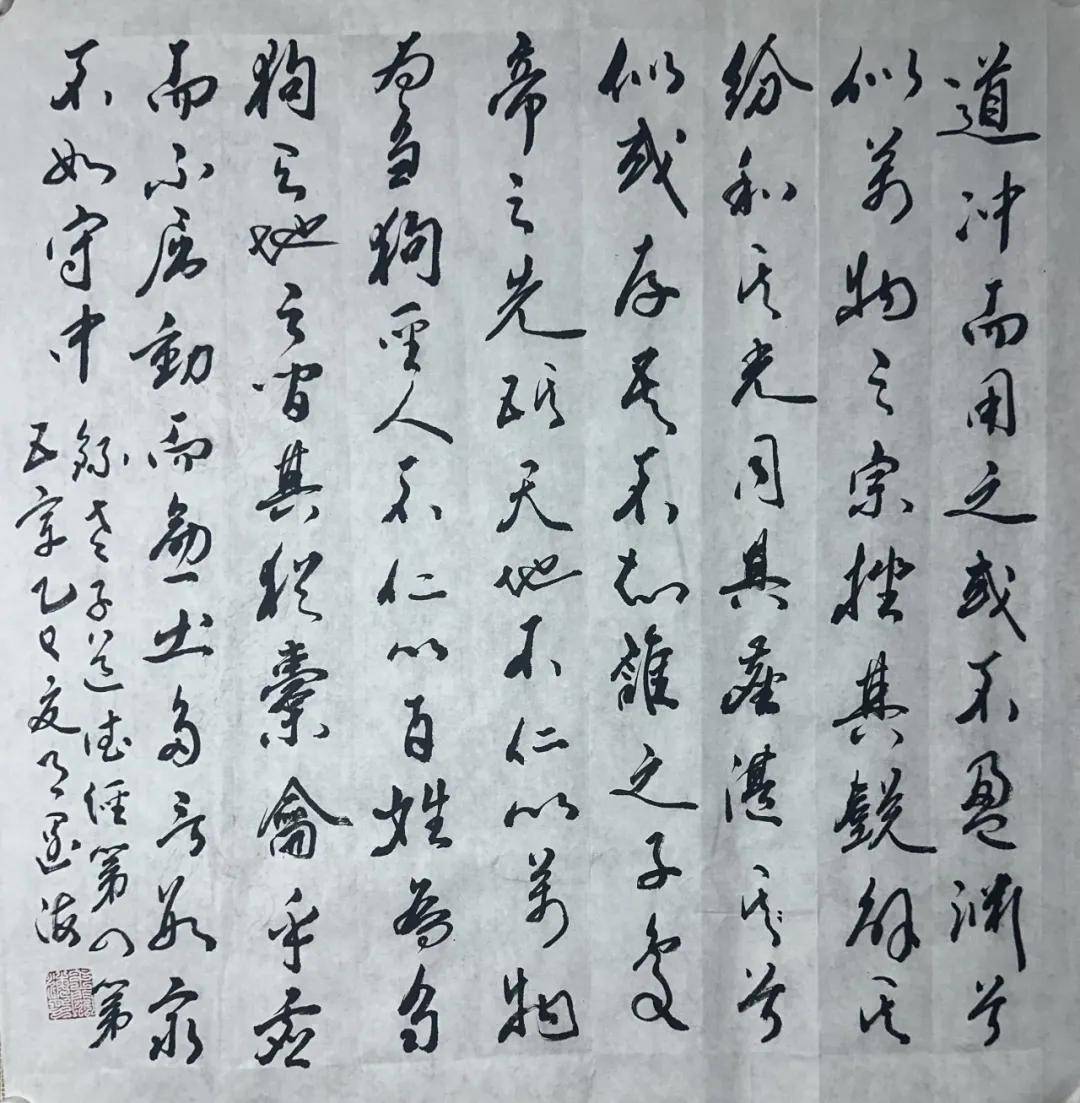 道冲而用之或不盈渊兮
似萬物之宗挫其銳解其
紛和其光同其塵湛其兮
似或存吾不知誰之子象
帝之先天地不仁以萬物
为芻狗聖人不仁以百姓為芻
狗天地之間其猶橐龠乎虛
而不屈動而愈出多言數窮
不如守中
錄老子道德經第四第
五章乙巳夏月墨海